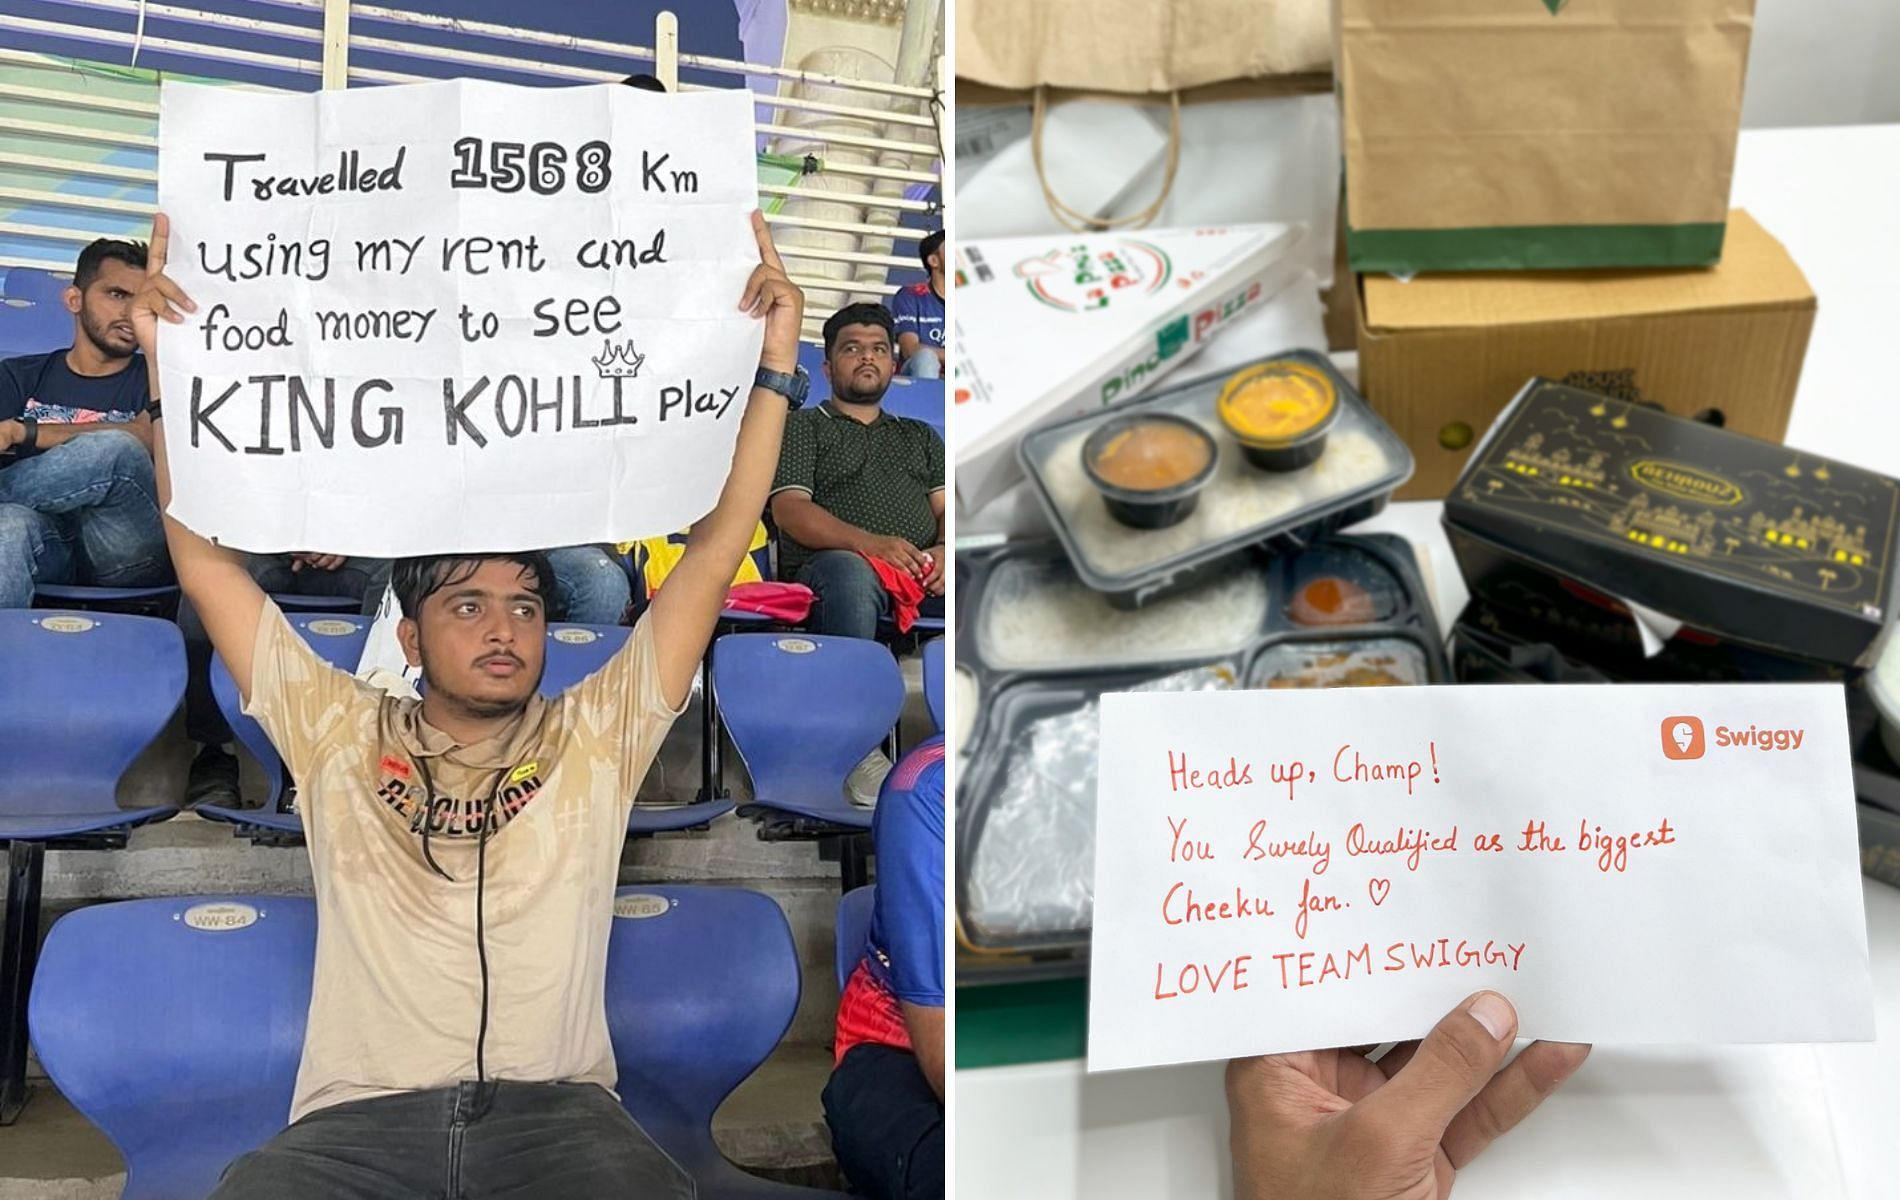 Travelled 1568 Km
using my rent and
food money to see
KING KOHLI play
REVOLUTION
WW-84
WW-85
La Pino'z
Pizza
Pinoz Pizza
HOUSE
BEHROUZ
Swiggy
Heads up, Champ!
You Surely Qualified as the biggest
Cheeku fan. ♡
LOVE TEAM SWIGGY